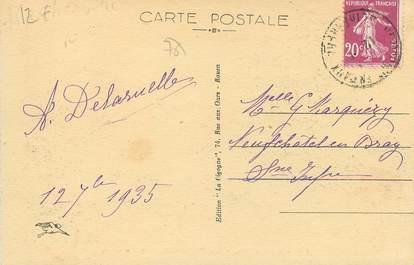 12 F
CARTE POSTALE
78
REPUBLIQUE FRANÇAISE
20c
A. Delaruelle
12 7bre 1935
Edition "La Cigogne", 74, Rue aux Ours - Rouen
Melle G Marquézy
Neufchâtel en Bray
Sne Infre